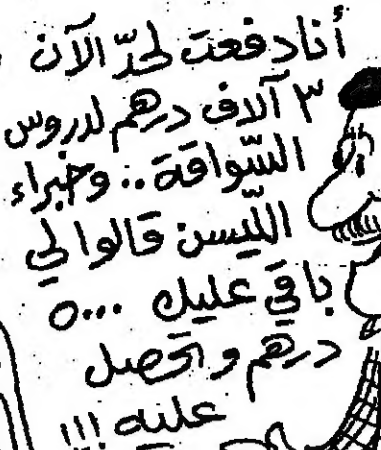 أنا دفعت لحدّ الآن
٣ آلاف درهم لدروس
السّواقة .. وخبراء
اللّيسن قالوا لي
باقي عليك ٥٠٠٠
درهم وتحصل
عليه !!!